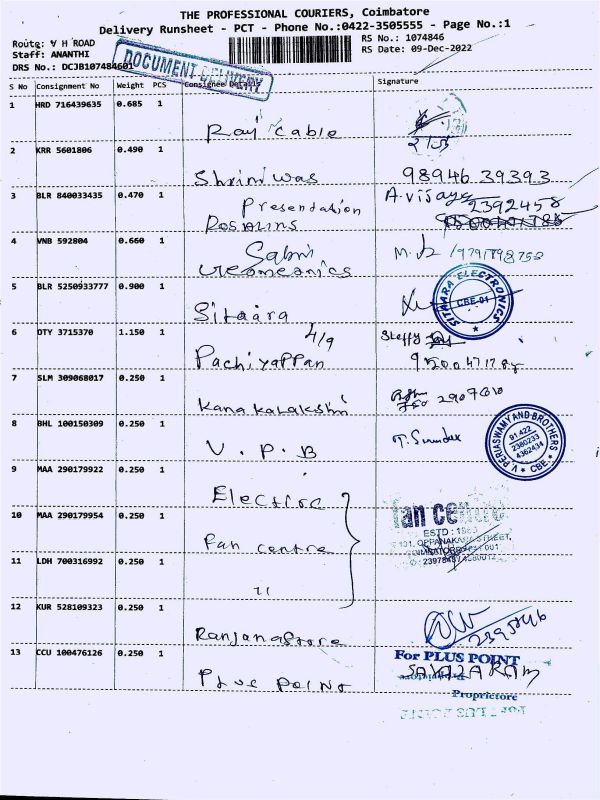 THE PROFESSIONAL COURIERS, Coimbatore
Delivery Runsheet - PCT - Phone No.:0422-3505555 - Page No.:1
Route: V H ROAD
RS No.: 1074846
Staff: ANANTHI
RS Date: 09-Dec-2022
DRS No.: DCJB107484601
DOCUMENT DELIVERY
S No Consignment No Weight PCS Consignee Details Signature
1 HRD 716439635 0.685 1
Raj Cable
2 KRR 5601806 0.490 1
Shriniwas 98946 39393
3 BLR 840033435 0.470 1 A. vijaya
Presendation 2392458
Rosalins
4 VNB 592804 0.660 1
Sabri
5 BLR 5250933777 0.900 1
Sitaara
SITAARA ELECTRONICS
CBE-01
6 DTY 3715370 1.150 1
4/9
Pachiyappan
7 SLM 309068017 0.250 1
Kanakalakshmi
8 BHL 100150309 0.250 1
V. P. B T. Sundar
V PERIASWAMY AND BROTHERS
91.422
2380233
4382434
CBE
9 MAA 290179922 0.250 1
Electric
10 MAA 290179954 0.250 1
Fan centre
fan centre
ESTD :
11 LDH 700316992 0.250 1
11
12 KUR 528109323 0.250 1
Ranjana Store
13 CCU 100476126 0.250 1
For PLUS POINT
Plus Point
Proprietore